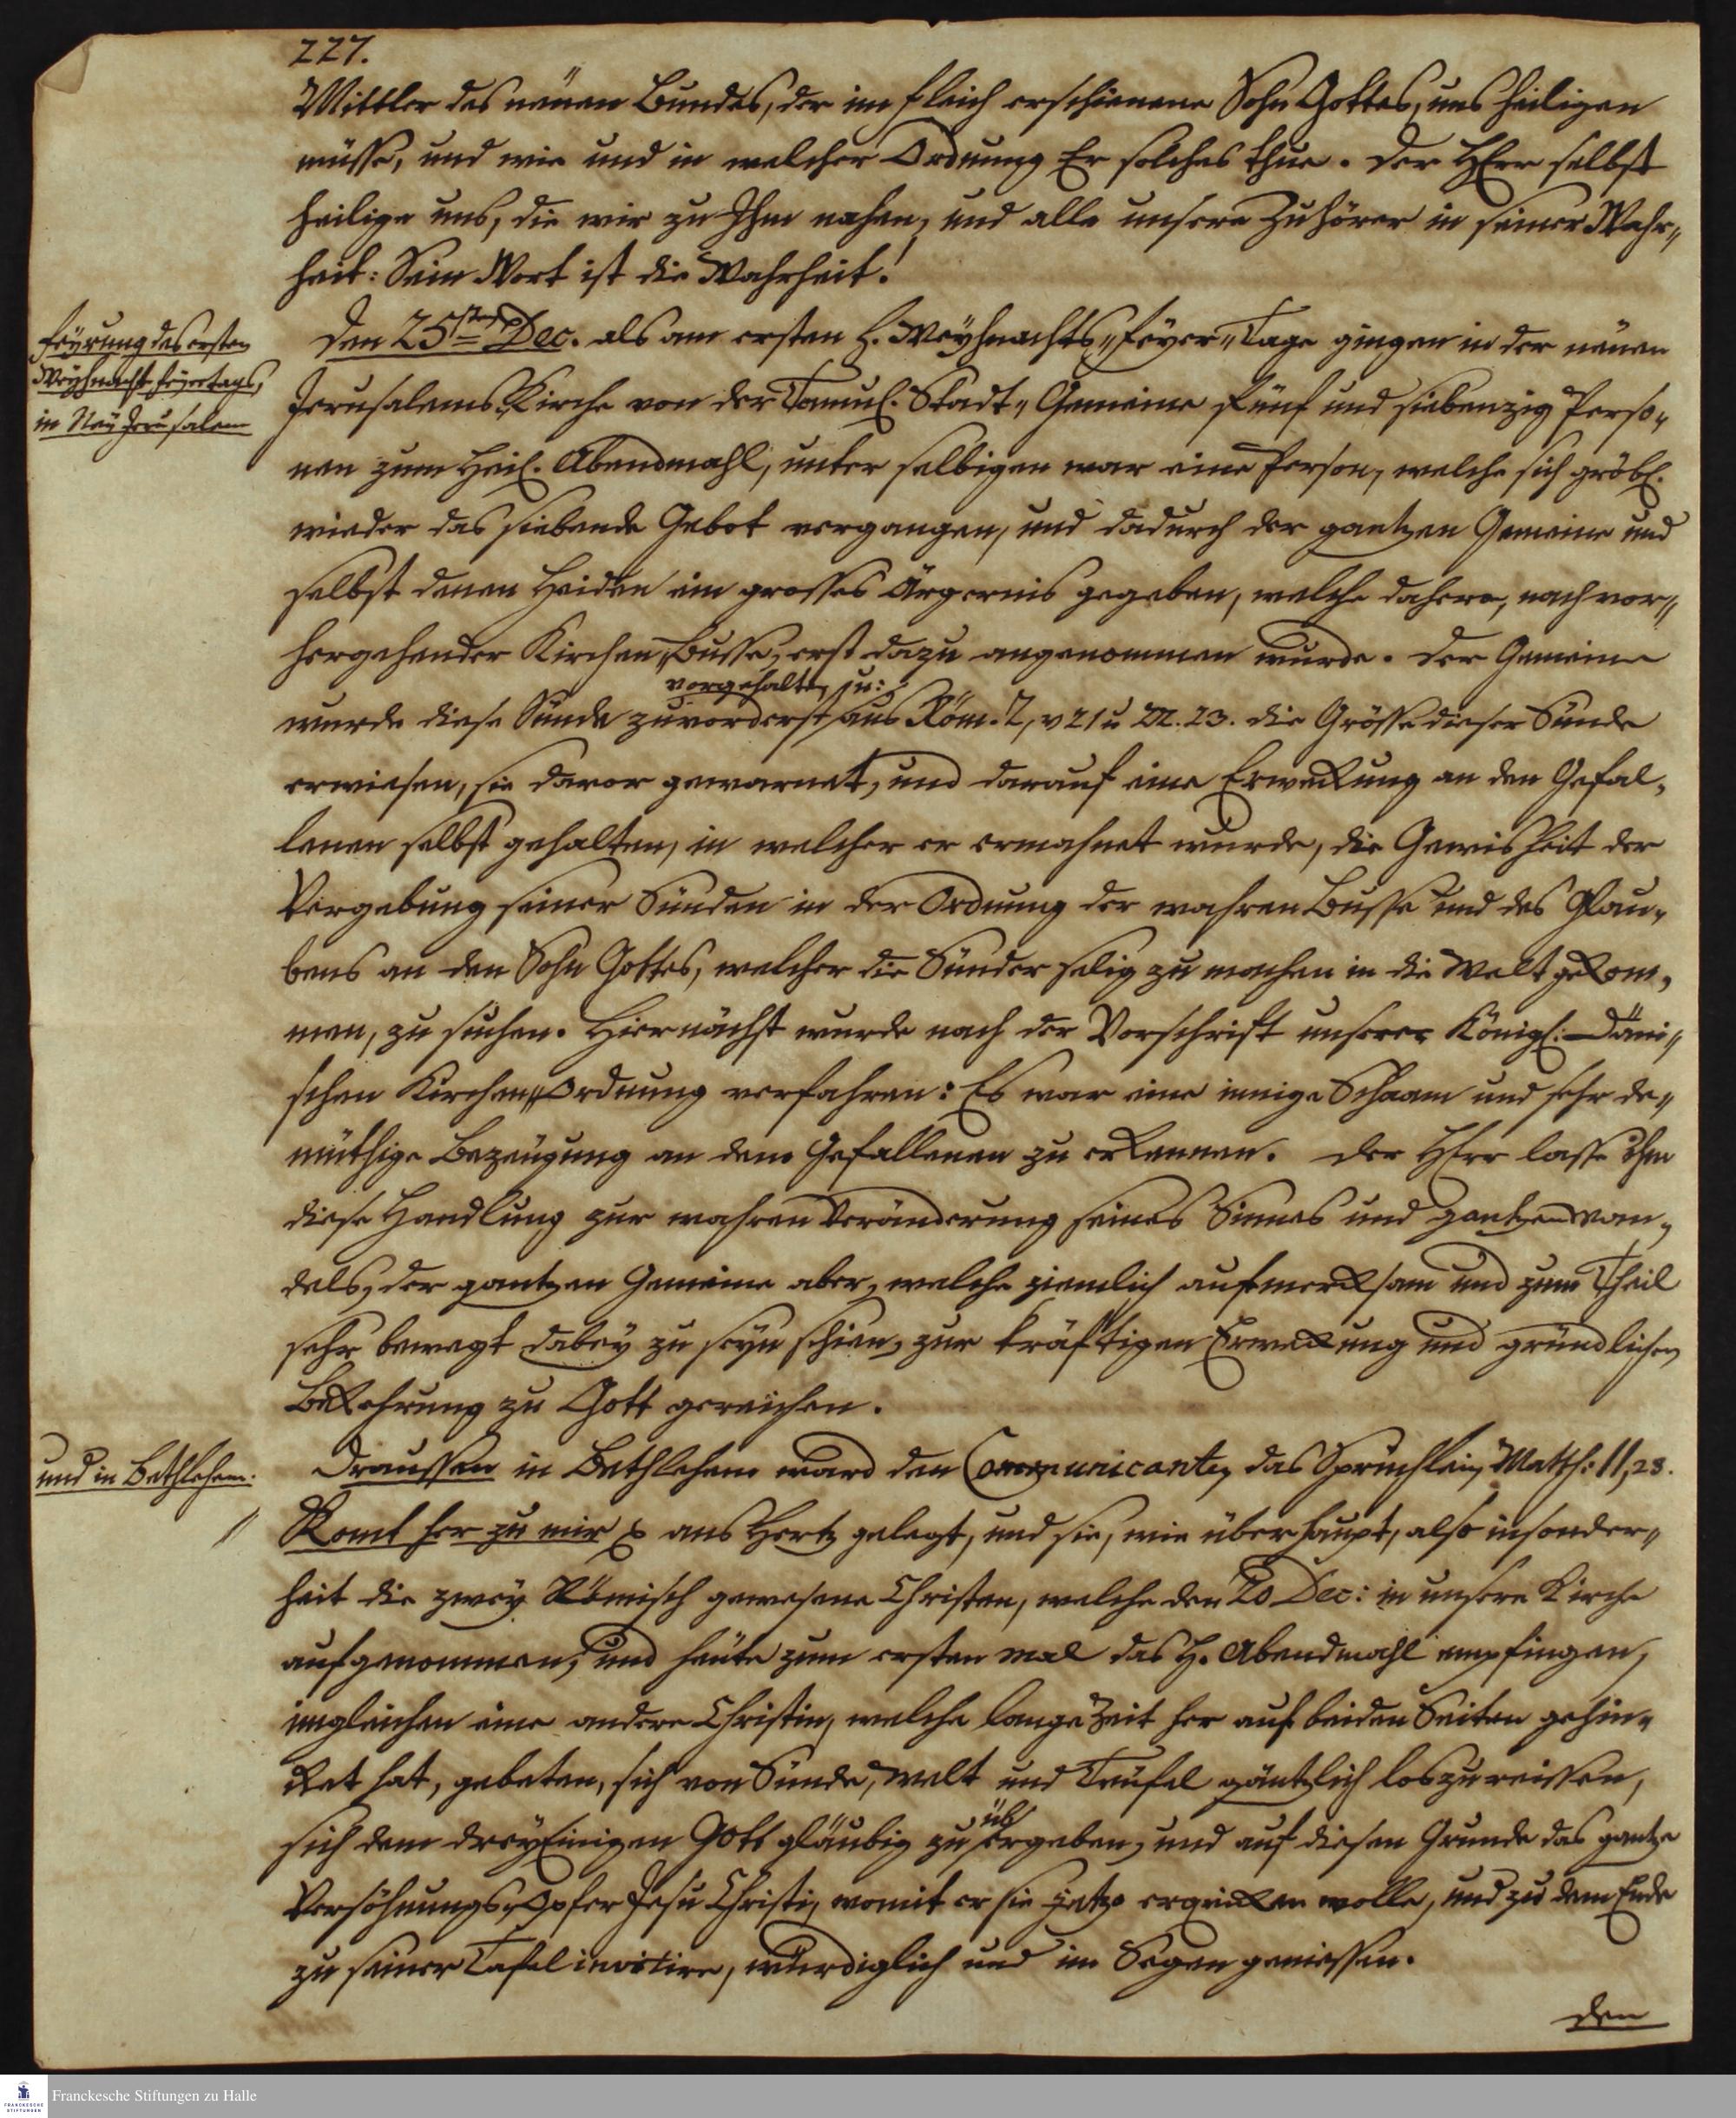 227.
Mittler des neuen Bundes, der im fleich erschienene Sohn Gottes, uns heiligen
müsse, und wie und in welcher Ordnung Er solches thue. Der HErr selbst
heilige uns, die wir zu Ihm nahen, und alle unsere Zuhörer in seiner Wahr„
heit: Sein Wort ist die Wahrheit!
Feyrung des ersten
Weyhnacht feyertags,
in Neu Jerusalem
Den 25sten Dec. als am ersten H. Weyhnachts„feyer„Tage gingen in der neuen
Jerusalems„Kirche von der Tamul. Stadt„Gemeine fünf und siebenzig Perso„
nen zum Heil. Abendmahl, unter selbigen war eine Person, welche sich gröbl.
wieder das siebende Gebot vergangen, und dadurch der gantzen Gemeine und
selbst denen Heiden ein grosses Ärgernis gegeben, welche dahero, nach vor„
hergehender Kirchen„Busse, erst dazu angenommen wurde. Der Gemeine
vorgehalten, u:
wurde diese Sünde zuvorderst aus Röm. 2, v 21 u 22. 23. die Grösse dieser Sünde
erwiesen, sie davor gewarnet, und darauf eine Erweckung an den Gefal„
lenen selbst gehalten, in welcher er ermahnet wurde, die Gewisheit der
Vergebung seiner Sünden in der Ordnung der wahren Busse und des Glau„
bens an den Sohn Gottes, welcher die Sünder selig zu machen in die Welt gekom„
men, zu suchen. Hiernächst wurde nach der Vorschrift unserer Königl: Däni„
schen Kirchen„Ordnung verfahren: Es war eine innige Schaam und sehr de„
müthige Bezeugung an dem Gefallenen zu erkennen. Der HErr lasse ihm
diese Handlung zur wahren Veränderung seines Sinnes und gantzen Wan„
dels, der gantzen Gemeine aber, welche ziemlich aufmerksam und zum Theil
sehr bewegt dabey zu seyn schien, zur kräftigen Erweckung und gründlichen
Bekehrung zu Gott gereichen.
und in Bethlehem.
Draussen in Bethlehem ward den Communicanten das Sprüchlein Matth: 11, 28.
Komt her zu mir p ans Hertz gelegt, und sie, wie überhaupt, also insonder„
heit die zwey Römisch gewesene Christen, welche den 20 Dec: in unsere Kirche
aufgenommen, und heute zum ersten mal das H. Abendmahl empfingen,
imgleichen eine andere Christin, welche lange Zeit her auf beiden Seiten gehin„
ket hat, gebeten, sich von Sünde, Welt und Teufel gäntzlich loszureissen,
üb
sich dem dreyEinigen GOtt gläubig zu ergeben, und auf diesen Grunde das gantze
Versöhnungs„Opfer Jesu Christi, womit er sie jetzo erquicken wolle, und zu dem Ende
zu seiner Tafel invitire, würdiglich und im Segen geniessen.
den
Franckesche Stiftungen zu Halle
FRANCKESCHE
STIFTUNGEN